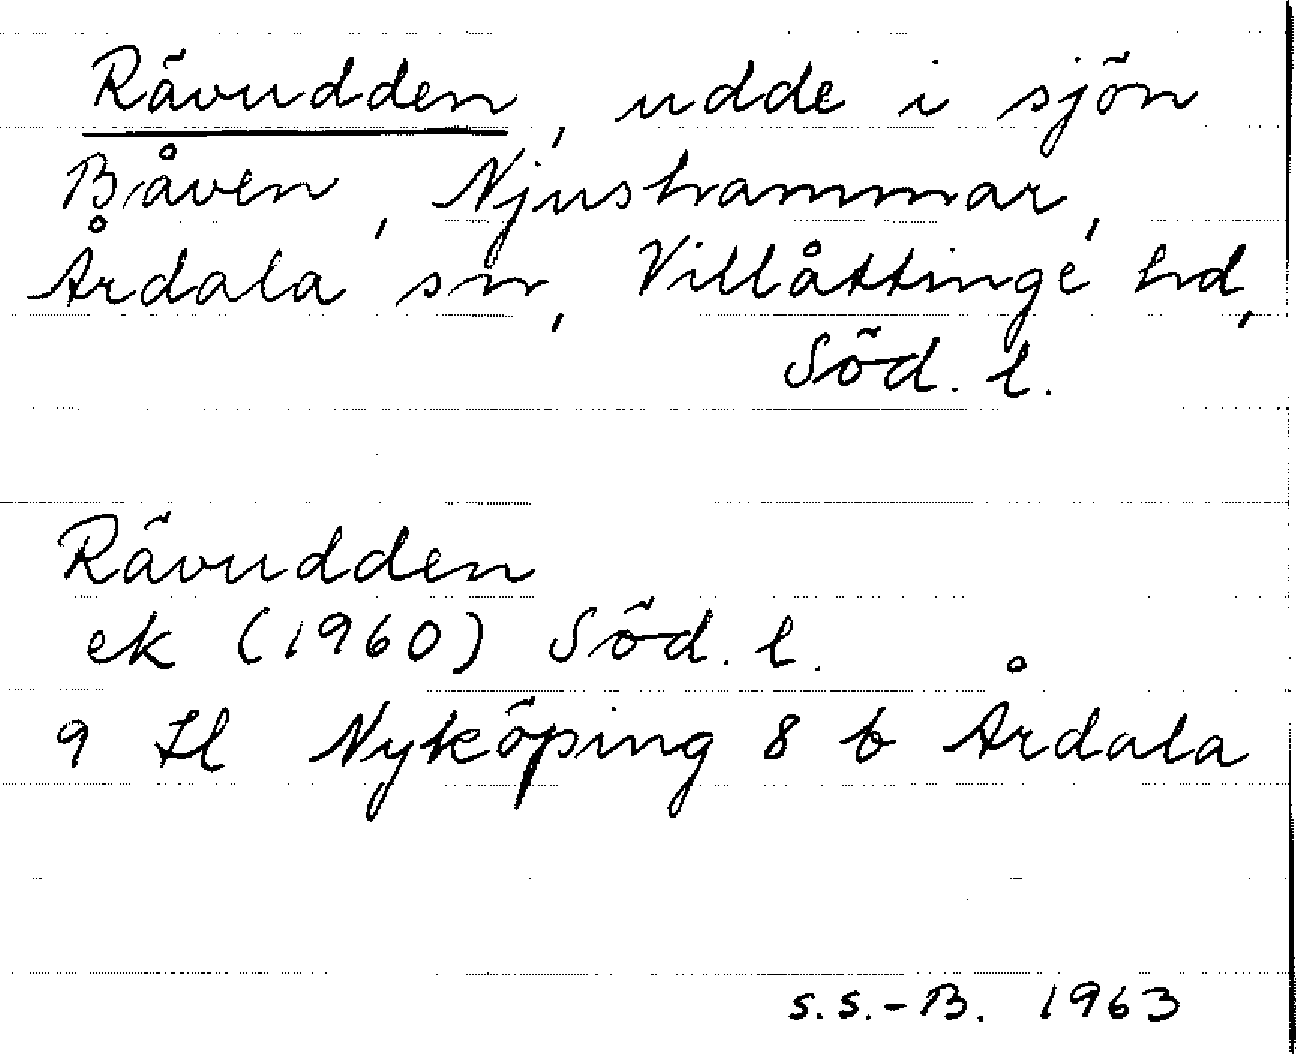 Rävudden, udde i sjön
Båven, Njushammar,
Årdala sn, Villåttinge hd,
Söd. l.
Rävudden
ek (1960) Söd. l.
9 H Nyköping 8 b Årdala
S.S.-B. 1963